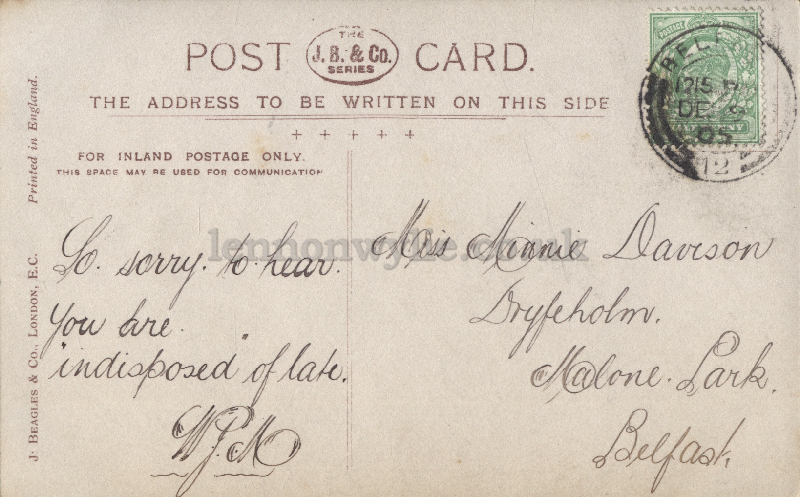 POST CARD.
THE
J. B. & Co.
SERIES
THE ADDRESS TO BE WRITTEN ON THIS SIDE
FOR INLAND POSTAGE ONLY.
THIS SPACE MAY BE USED FOR COMMUNICATION
J. BEAGLES & Co., LONDON, E.C. Printed in England.
So. sorry. to. hear.
You are.
"indisposed" of late.
W.J.M
Miss Minnie Davison
Dryfeholm.
Malone. Park.
Belfast.
POSTAGE
12
lennonwylie.co.uk